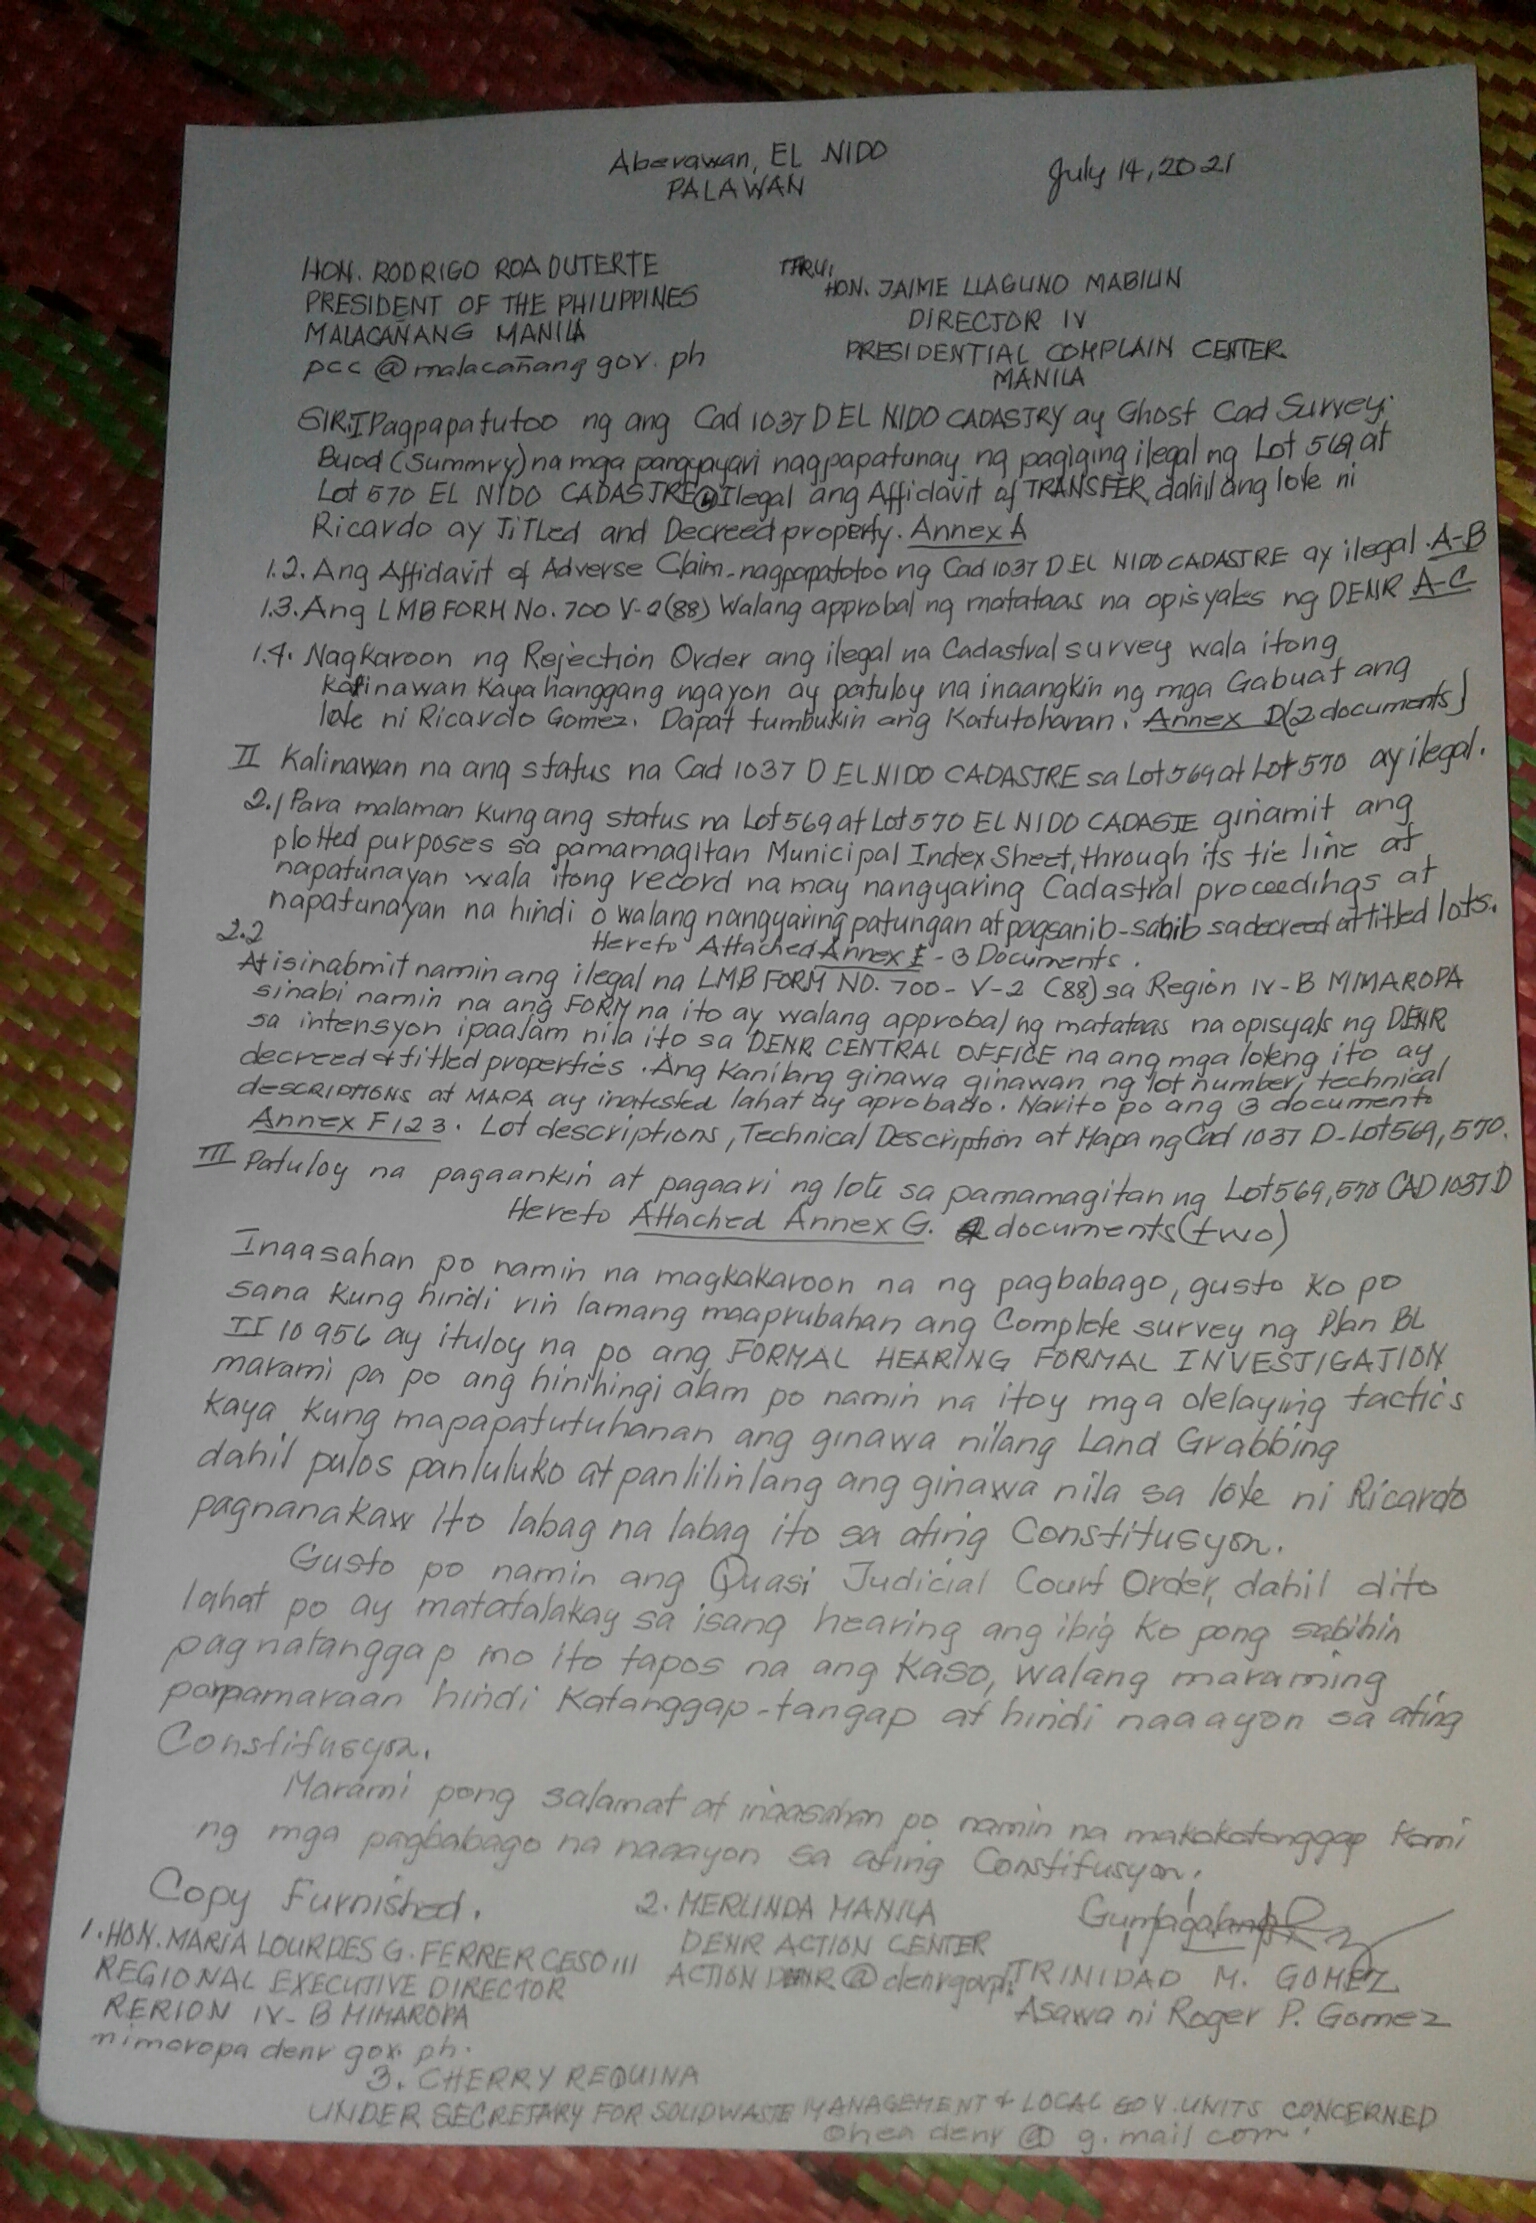 Aberawan, EL NIDO
PALAWAN
July 14, 2021
HON. RODRIGO ROA DUTERTE
PRESIDENT OF THE PHILIPPINES
MALACAÑANG MANILA
pcc@malacañang gov. ph
THRU:
HON. JAIME LLAGUNO MABILIN
DIRECTOR IV
PRESIDENTIAL COMPLAIN CENTER
MANILA
SIR: I Pagpapatutoo ng ang Cad 1037 D EL NIDO CADASTRY ay Ghost Cad Survey.
Buod (Summry) na mga pangyayari nagpapatunay ng pagiging ilegal ng Lot 569 at
Lot 570 EL NIDO CADASTRE Ilegal ang Affidavit of TRANSFER, dahil ang lote ni
Ricardo ay Titled and Decreed property. Annex A
1.2. Ang Affidavit of Adverse Claim-nagpapatotoo ng Cad 1037 D EL NIDO CADASTRE ay ilegal. A-B
1.3. Ang LMB FORM No. 700 V-2(88) Walang approbal ng matataas na opisyales ng DENR A-C
1.4. Nagkaroon ng Rejection Order ang ilegal na Cadastral survey wala itong
kalinawan kaya hanggang ngayon ay patuloy na inaangkin ng mga Gabuat ang
lote ni Ricardo Gomez. Dapat tumbukin ang Katutohanan. Annex D(2 documents)
II Kalinawan na ang status na Cad 1037 D EL NIDO CADASTRE sa Lot 569 at Lot 570 ay ilegal.
2.1 Para malaman kung ang status na Lot 569 at Lot 570 EL NIDO CADASTE ginamit ang
plotted purposes sa pamamagitan Municipal Index Sheet, through its tie line at
napatunayan wala itong record na may nangyaring Cadastral proceedings at
napatunayan na hindi o walang nangyaring patungan at pagsanib-sanib sa decreed at titled lots.
Hereto Attached Annex E - 3 Documents.
2.2
At isinabmit namin ang ilegal na LMB FORM NO. 700-V-2 (88) sa Region IV-B MIMAROPA
sinabi namin na ang FORM na ito ay walang approbal ng matataas na opisyals ng DENR
sa intensyon ipaalam nila ito sa DENR CENTRAL OFFICE na ang mga loteng ito ay
decreed & titled properties. Ang kanilang ginawa ginawan ng lot number, technical
descriptions at MAPA ay inatested lahat ay aprobado. Narito po ang 3 documents
Annex F 1 2 3. Lot descriptions, Technical Description at Mapa ng Cad 1037 D-Lot 569, 570.
III Patuloy na pagaankin at pagaari ng lote sa pamamagitan ng Lot 569, 570 CAD 1037 D
Hereto Attached Annex G. 2 documents (two)
Inaasahan po namin na magkakaroon na ng pagbabago, gusto ko po
sana kung hindi rin lamang maaprubahan ang Complete survey ng Plan BL
II 10 956 ay ituloy na po ang FORMAL HEARING FORMAL INVESTIGATION
marami pa po ang hinihingi alam po namin na itoy mga delaying tactics
kaya kung mapapatutuhanan ang ginawa nilang Land Grabbing
dahil pulos panluluko at panlilinlang ang ginawa nila sa lote ni Ricardo
pagnanakaw ito labag na labag ito sa ating Constitusyon.
Gusto po namin ang Quasi Judicial Court Order, dahil dito
lahat po ay matatalakay sa isang hearing ang ibig ko pong sabihin
pagnatanggap mo ito tapos na ang kaso, walang maraming
pampamaraan hindi katanggap-tangap at hindi naaayon sa ating
Constitusyon.
Marami pong salamat at inaasahan po namin na makakatanggap kami
ng mga pagbabago na naaayon sa ating Constitusyon.
Copy Furnished.
1. HON. MARIA LOURDES G. FERRER CESO III
REGIONAL EXECUTIVE DIRECTOR
RERION IV-B MIMAROPA
mimaropa denr gov. ph.
2. MERLINDA MANILA
DENR ACTION CENTER
ACTION DENR @ denr gov ph.
Gumagalang
TRINIDAD M. GOMEZ
Asawa ni Roger P. Gomez
3. CHERRY REQUINA
UNDER SECRETARY FOR SOLIDWASTE MANAGEMENT & LOCAL GOV. UNITS CONCERNED
denr @ g.mail com.